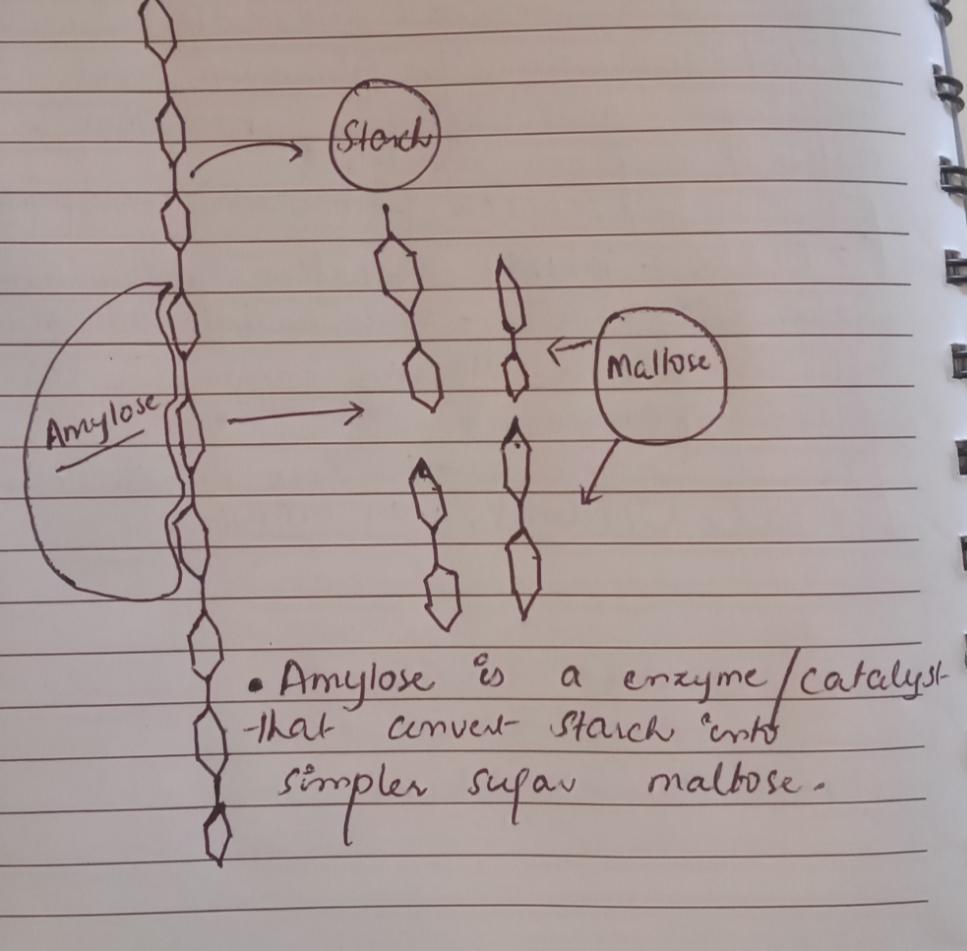 Starch
Maltose
Amylose
• Amylose is a enzyme/catalyst
that convert starch into
simpler sugar maltose.